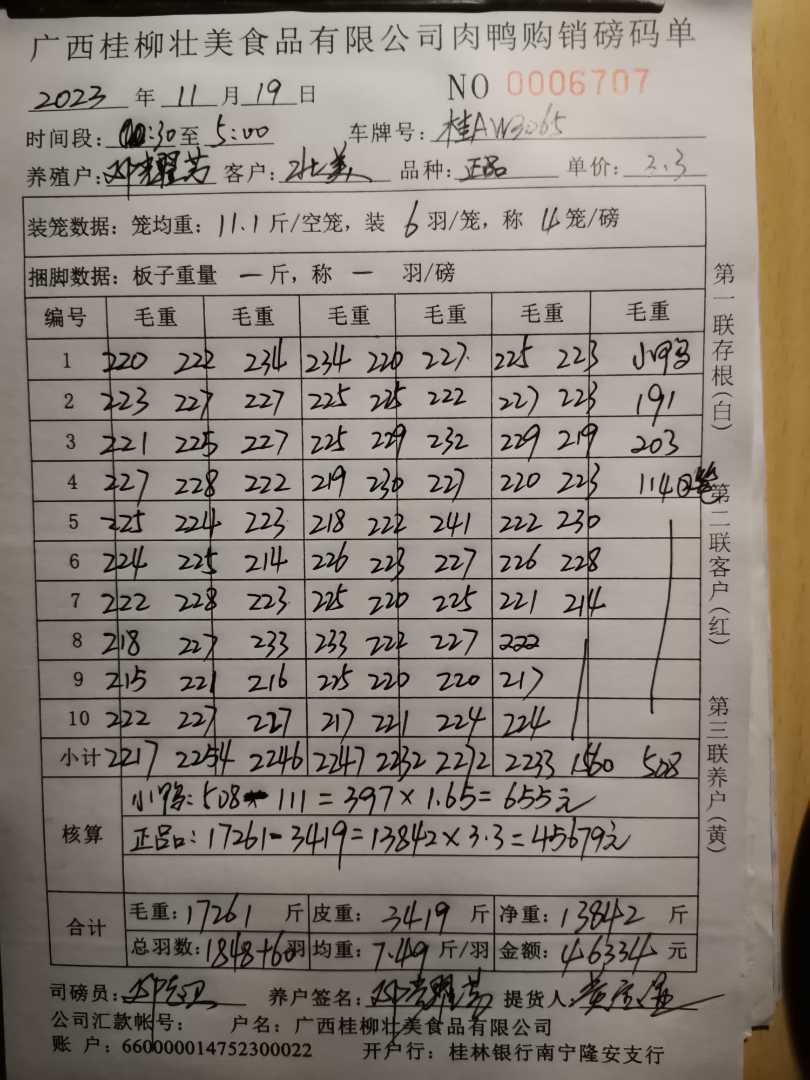 广西桂柳壮美食品有限公司肉鸭购销磅码单
2023 年 11 月 19 日 NO 0006707
时间段: :30 至 5:00 车牌号: 桂AW3065
养殖户: 客户: 壮美 品种: 正品 单价: 3.3
装笼数据: 笼均重: 11.1 斤/空笼, 装 6 羽/笼, 称 4 笼/磅
捆脚数据: 板子重量 一 斤, 称 一 羽/磅
编号 毛重 毛重 毛重 毛重 毛重 毛重
1 220 222 234 234 220 227 225 223 小鸭
2 223 227 227 225 225 222 227 223 191
3 221 225 227 225 229 232 229 219 203
4 227 228 222 219 230 227 220 223 114 2笼
5 225 224 223 218 222 241 222 230
6 224 225 214 226 223 227 226 228
7 222 228 223 225 220 225 221 214
8 218 227 233 233 222 227 222
9 215 221 216 225 220 220 217
10 222 227 227 217 221 224 224
小计 2217 2254 2246 2247 2232 2272 2233 1560 508
核算 小鸭: 508 - 111 = 397 × 1.65 = 655元
正品: 17261 - 3419 = 13842 × 3.3 = 45679元
合计 毛重: 17261 斤 皮重: 3419 斤 净重: 13842 斤
总羽数: 1848+60 羽 均重: 7.49 斤/羽 金额: 46334 元
司磅员: 养户签名: 提货人:
公司汇款帐号: 户名: 广西桂柳壮美食品有限公司
账 户: 660000014752300022 开户行: 桂林银行南宁隆安支行
第一联存根(白)
第二联客户(红)
第三联养户(黄)